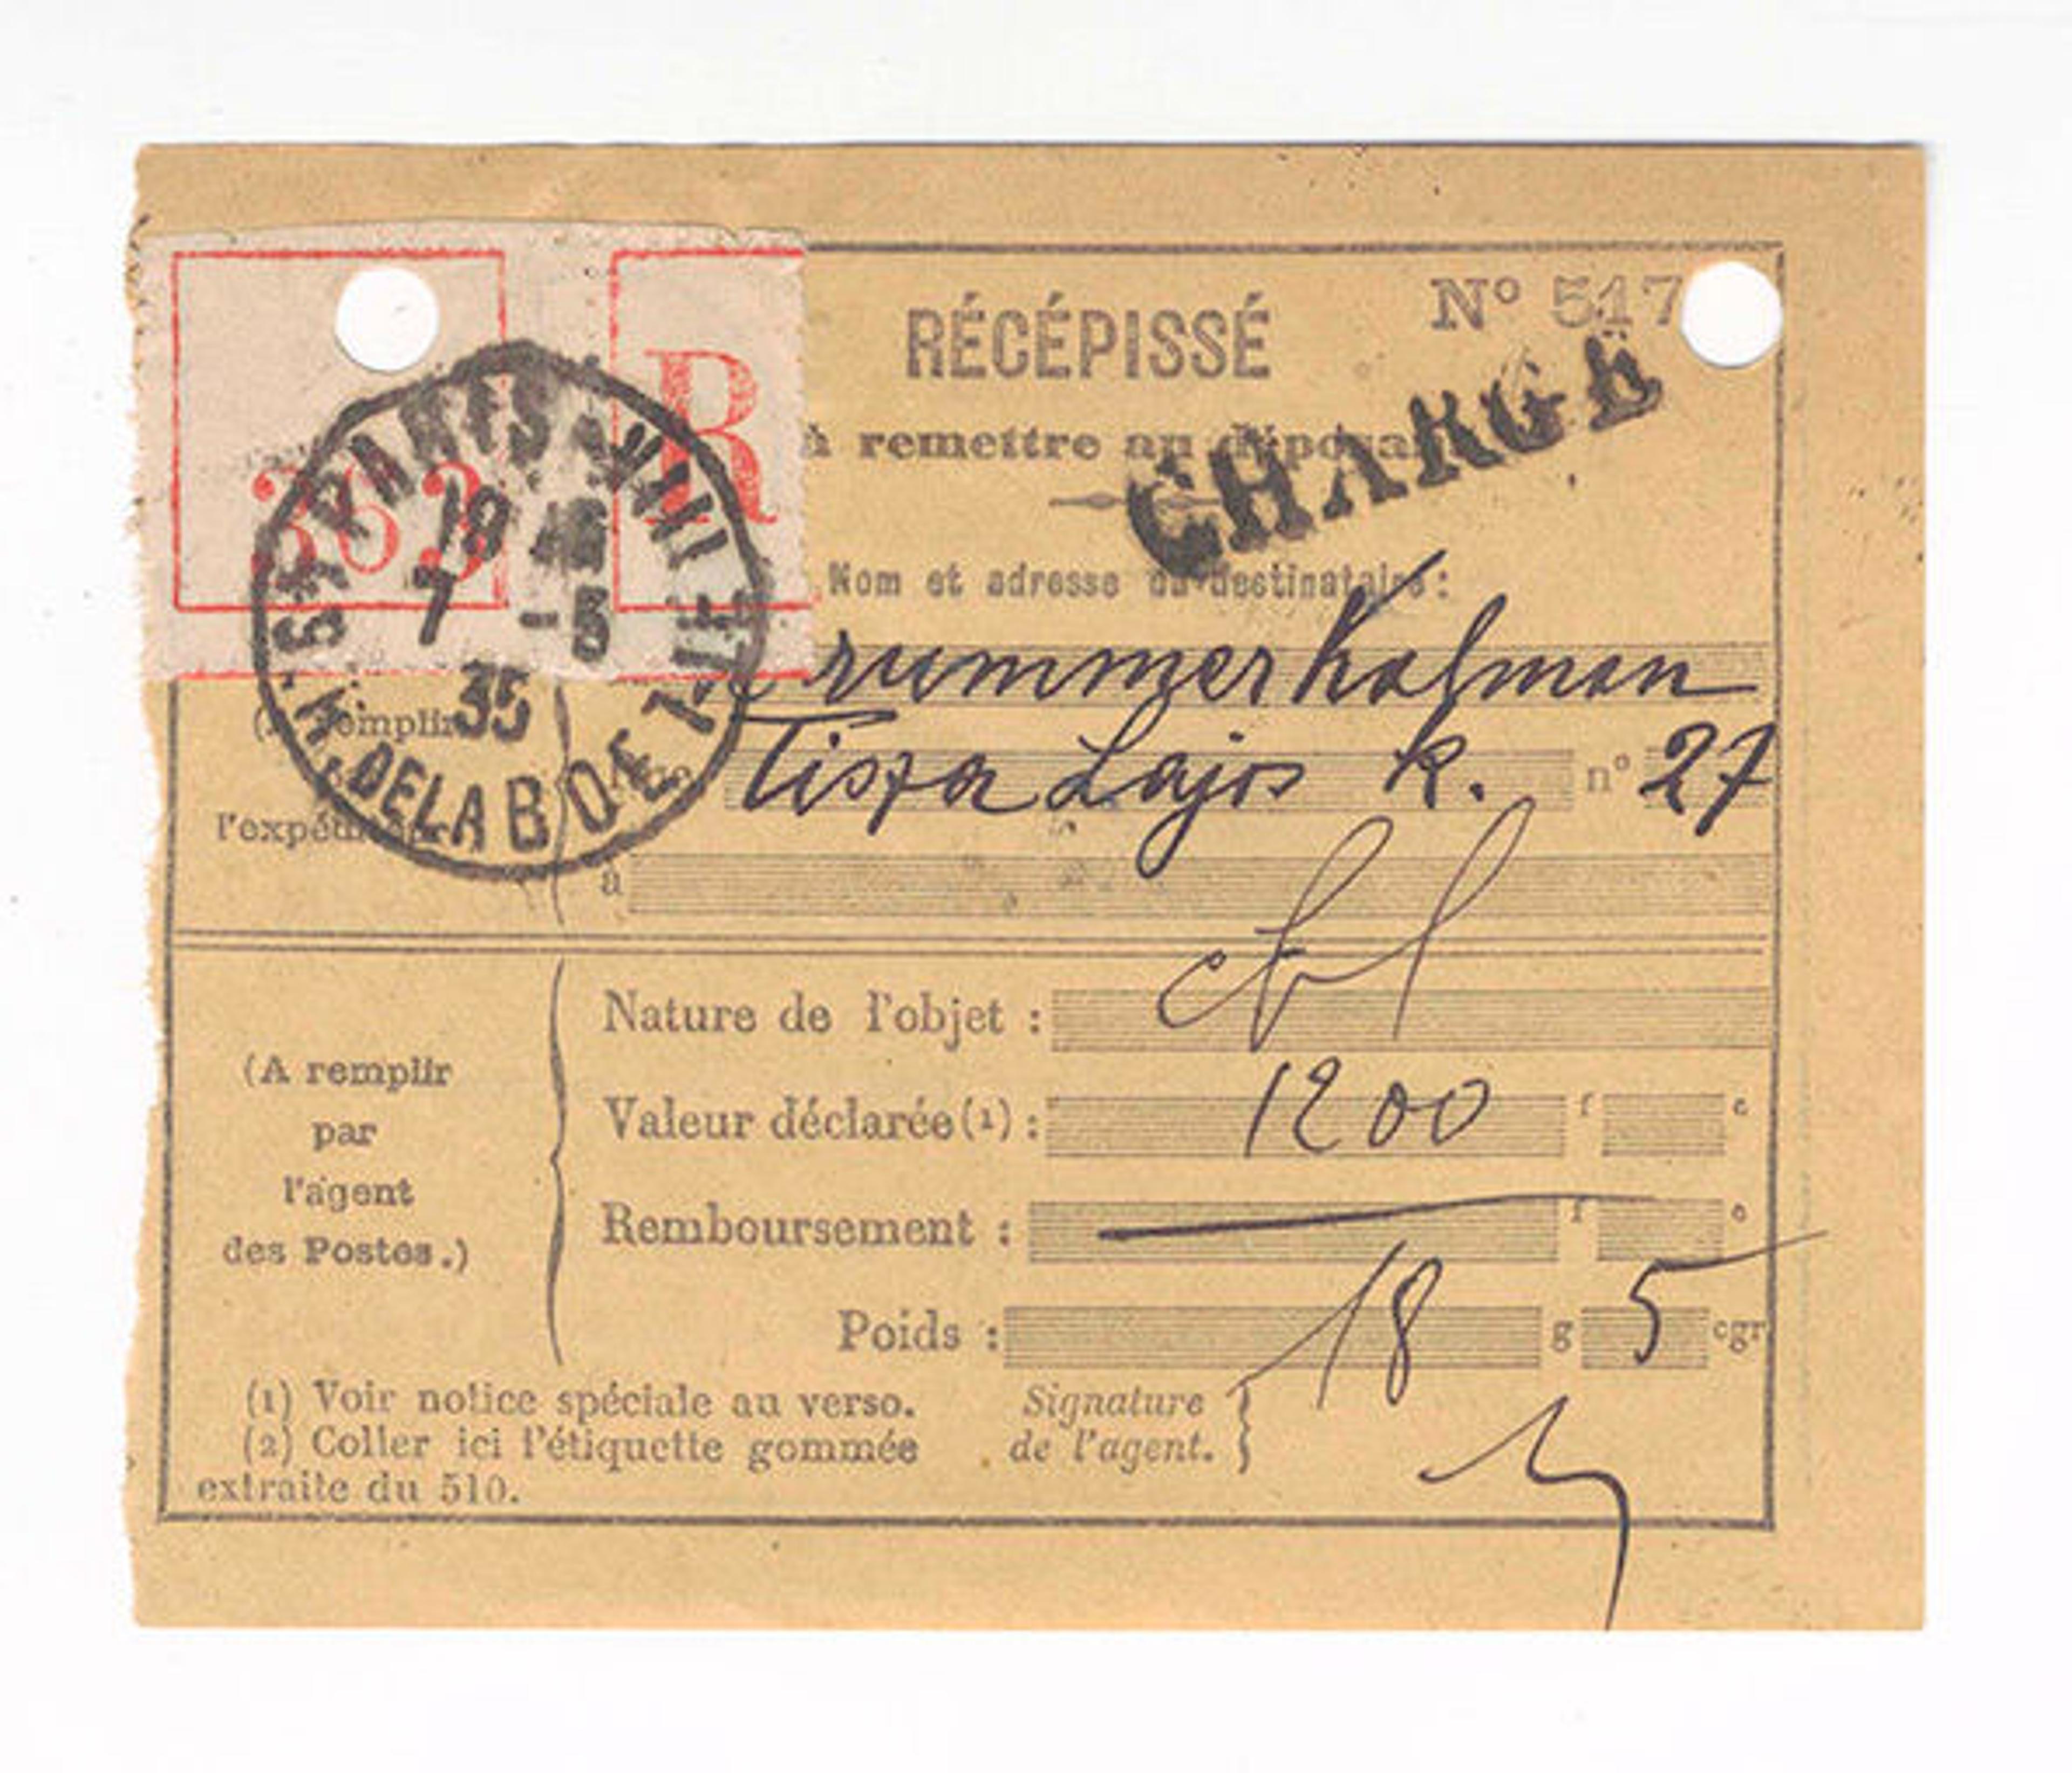 R
RÉCÉPISSÉ
N° 517
CHARGÉ
à remettre au déposant
Nom et adresse du destinataire :
rummer Kalman
Tisza Lajos k. n° 27
à
l'expéditeur
PARIS
19 16
7 -5
35
R. DE LA BOETIE
Nature de l'objet :
(A remplir
par
l'agent
des Postes.)
Valeur déclarée (1) : 1200 f c
Remboursement : f c
Poids : 18 g 5 cgr
(1) Voir notice spéciale au verso.
(2) Coller ici l'étiquette gommée
extraite du 510.
Signature
de l'agent.